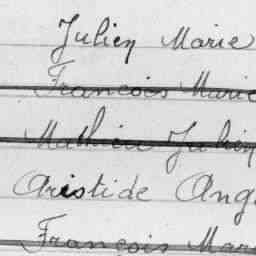 Julien Marie
François Marie
Mathieu Julien
Aristide Ang
François Mar